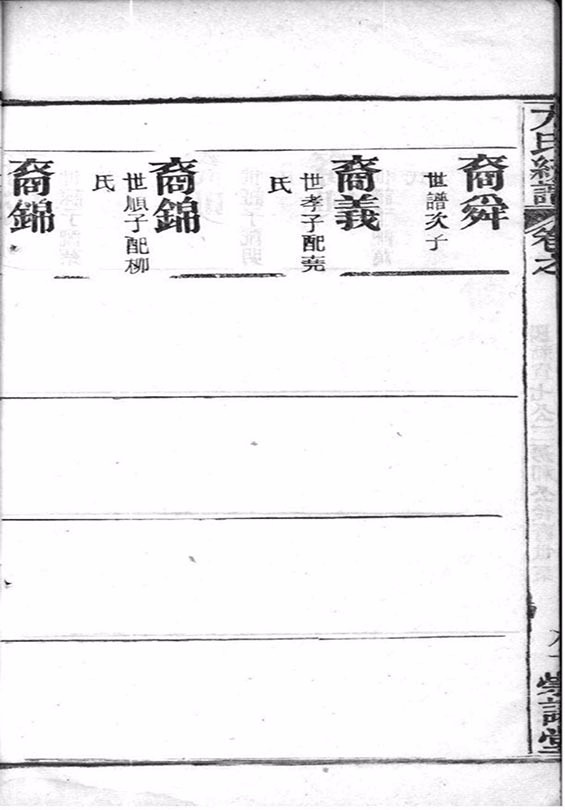 方氏統譜
卷之
裔舜
世譜次子
裔義
世孝子配堯
氏
裔錦
世順子配柳
氏
裔錦